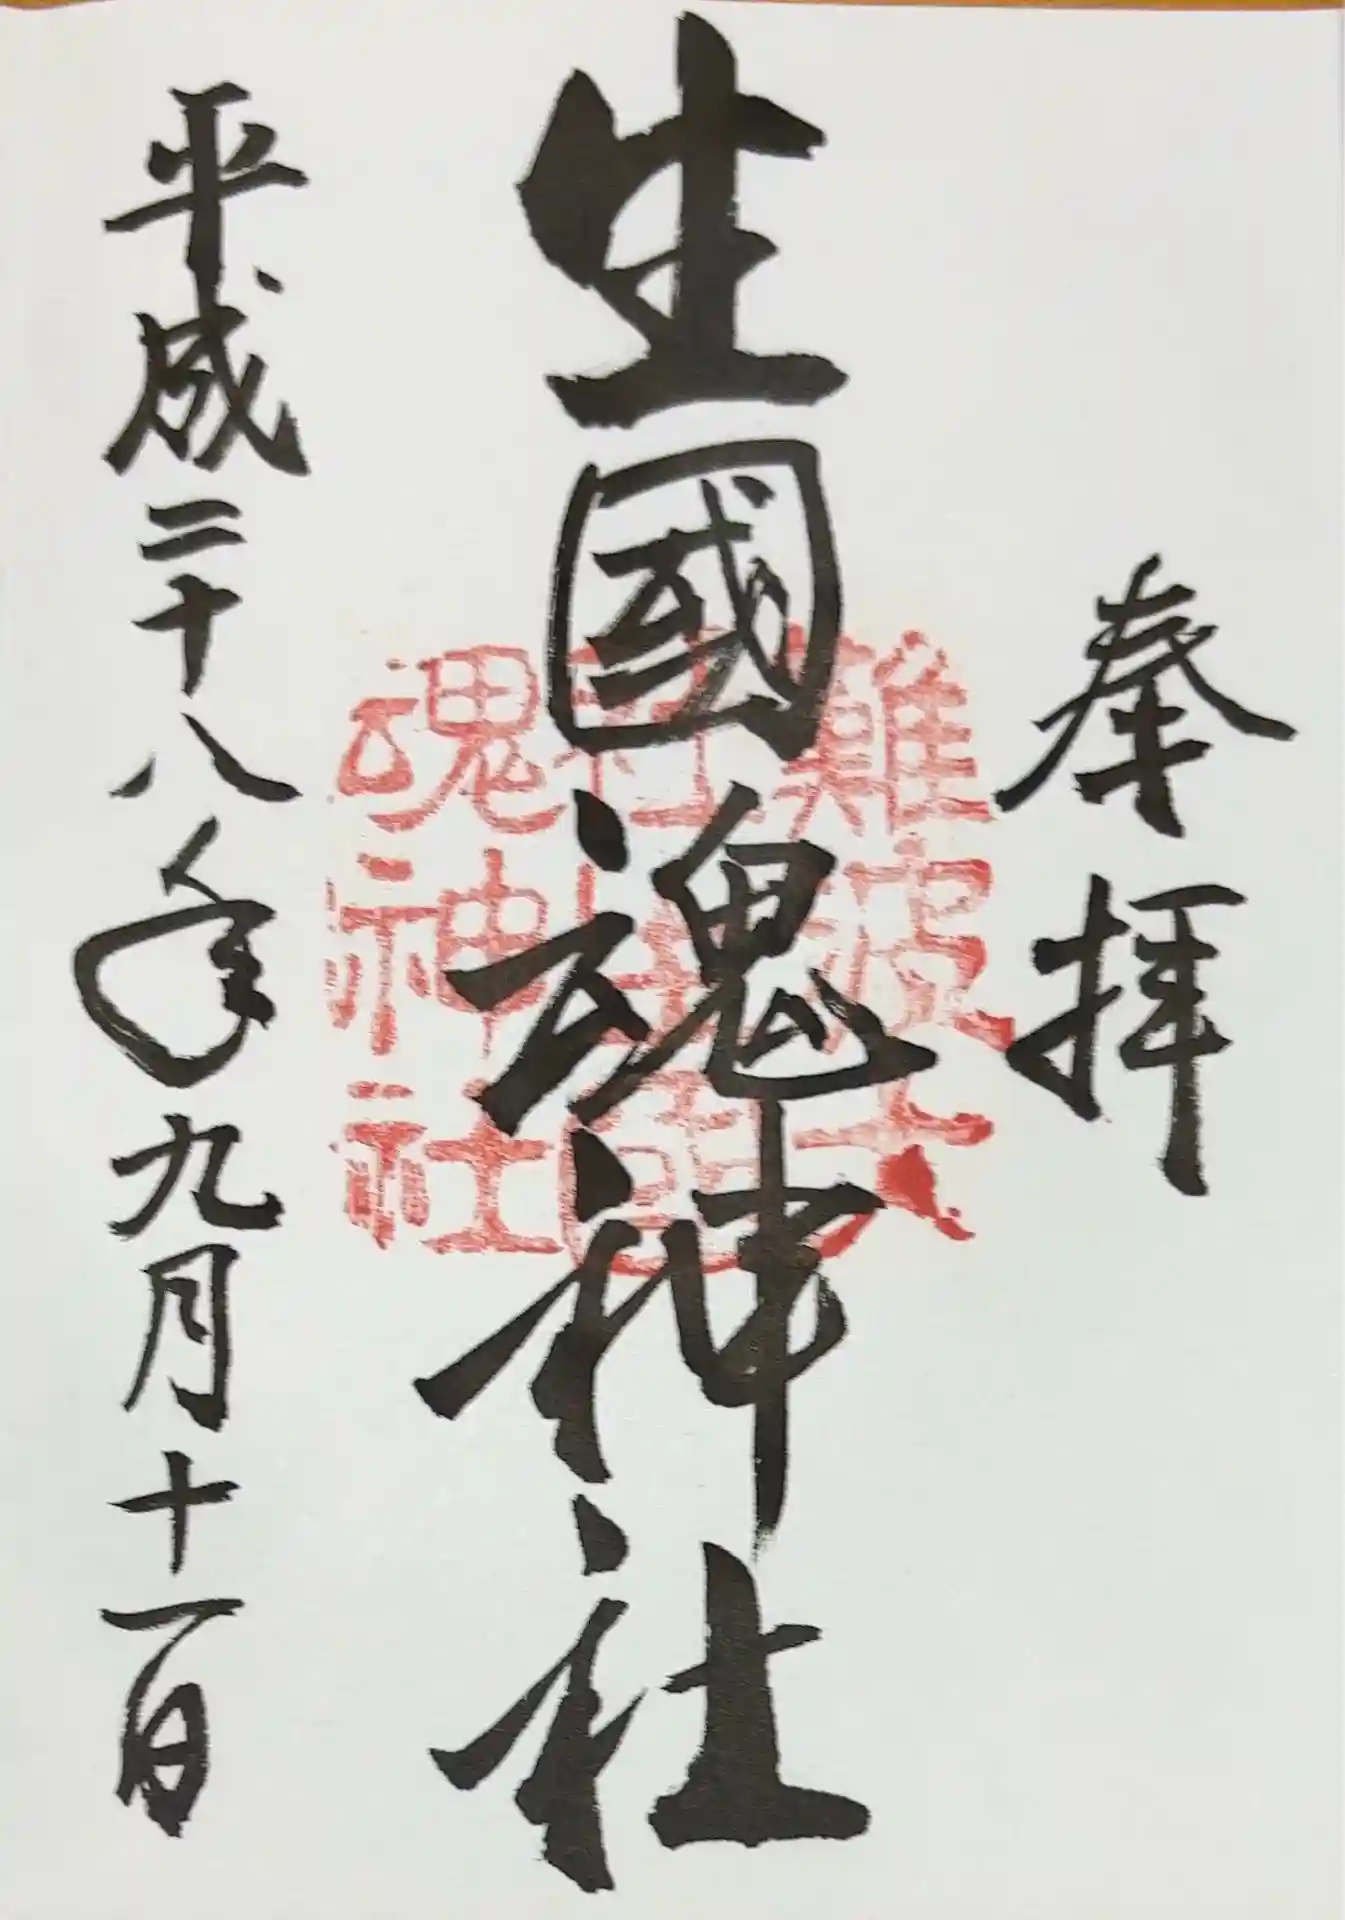 奉拝
生國魂神社
平成二十八年九月十一日
難波大
社生國
魂神社